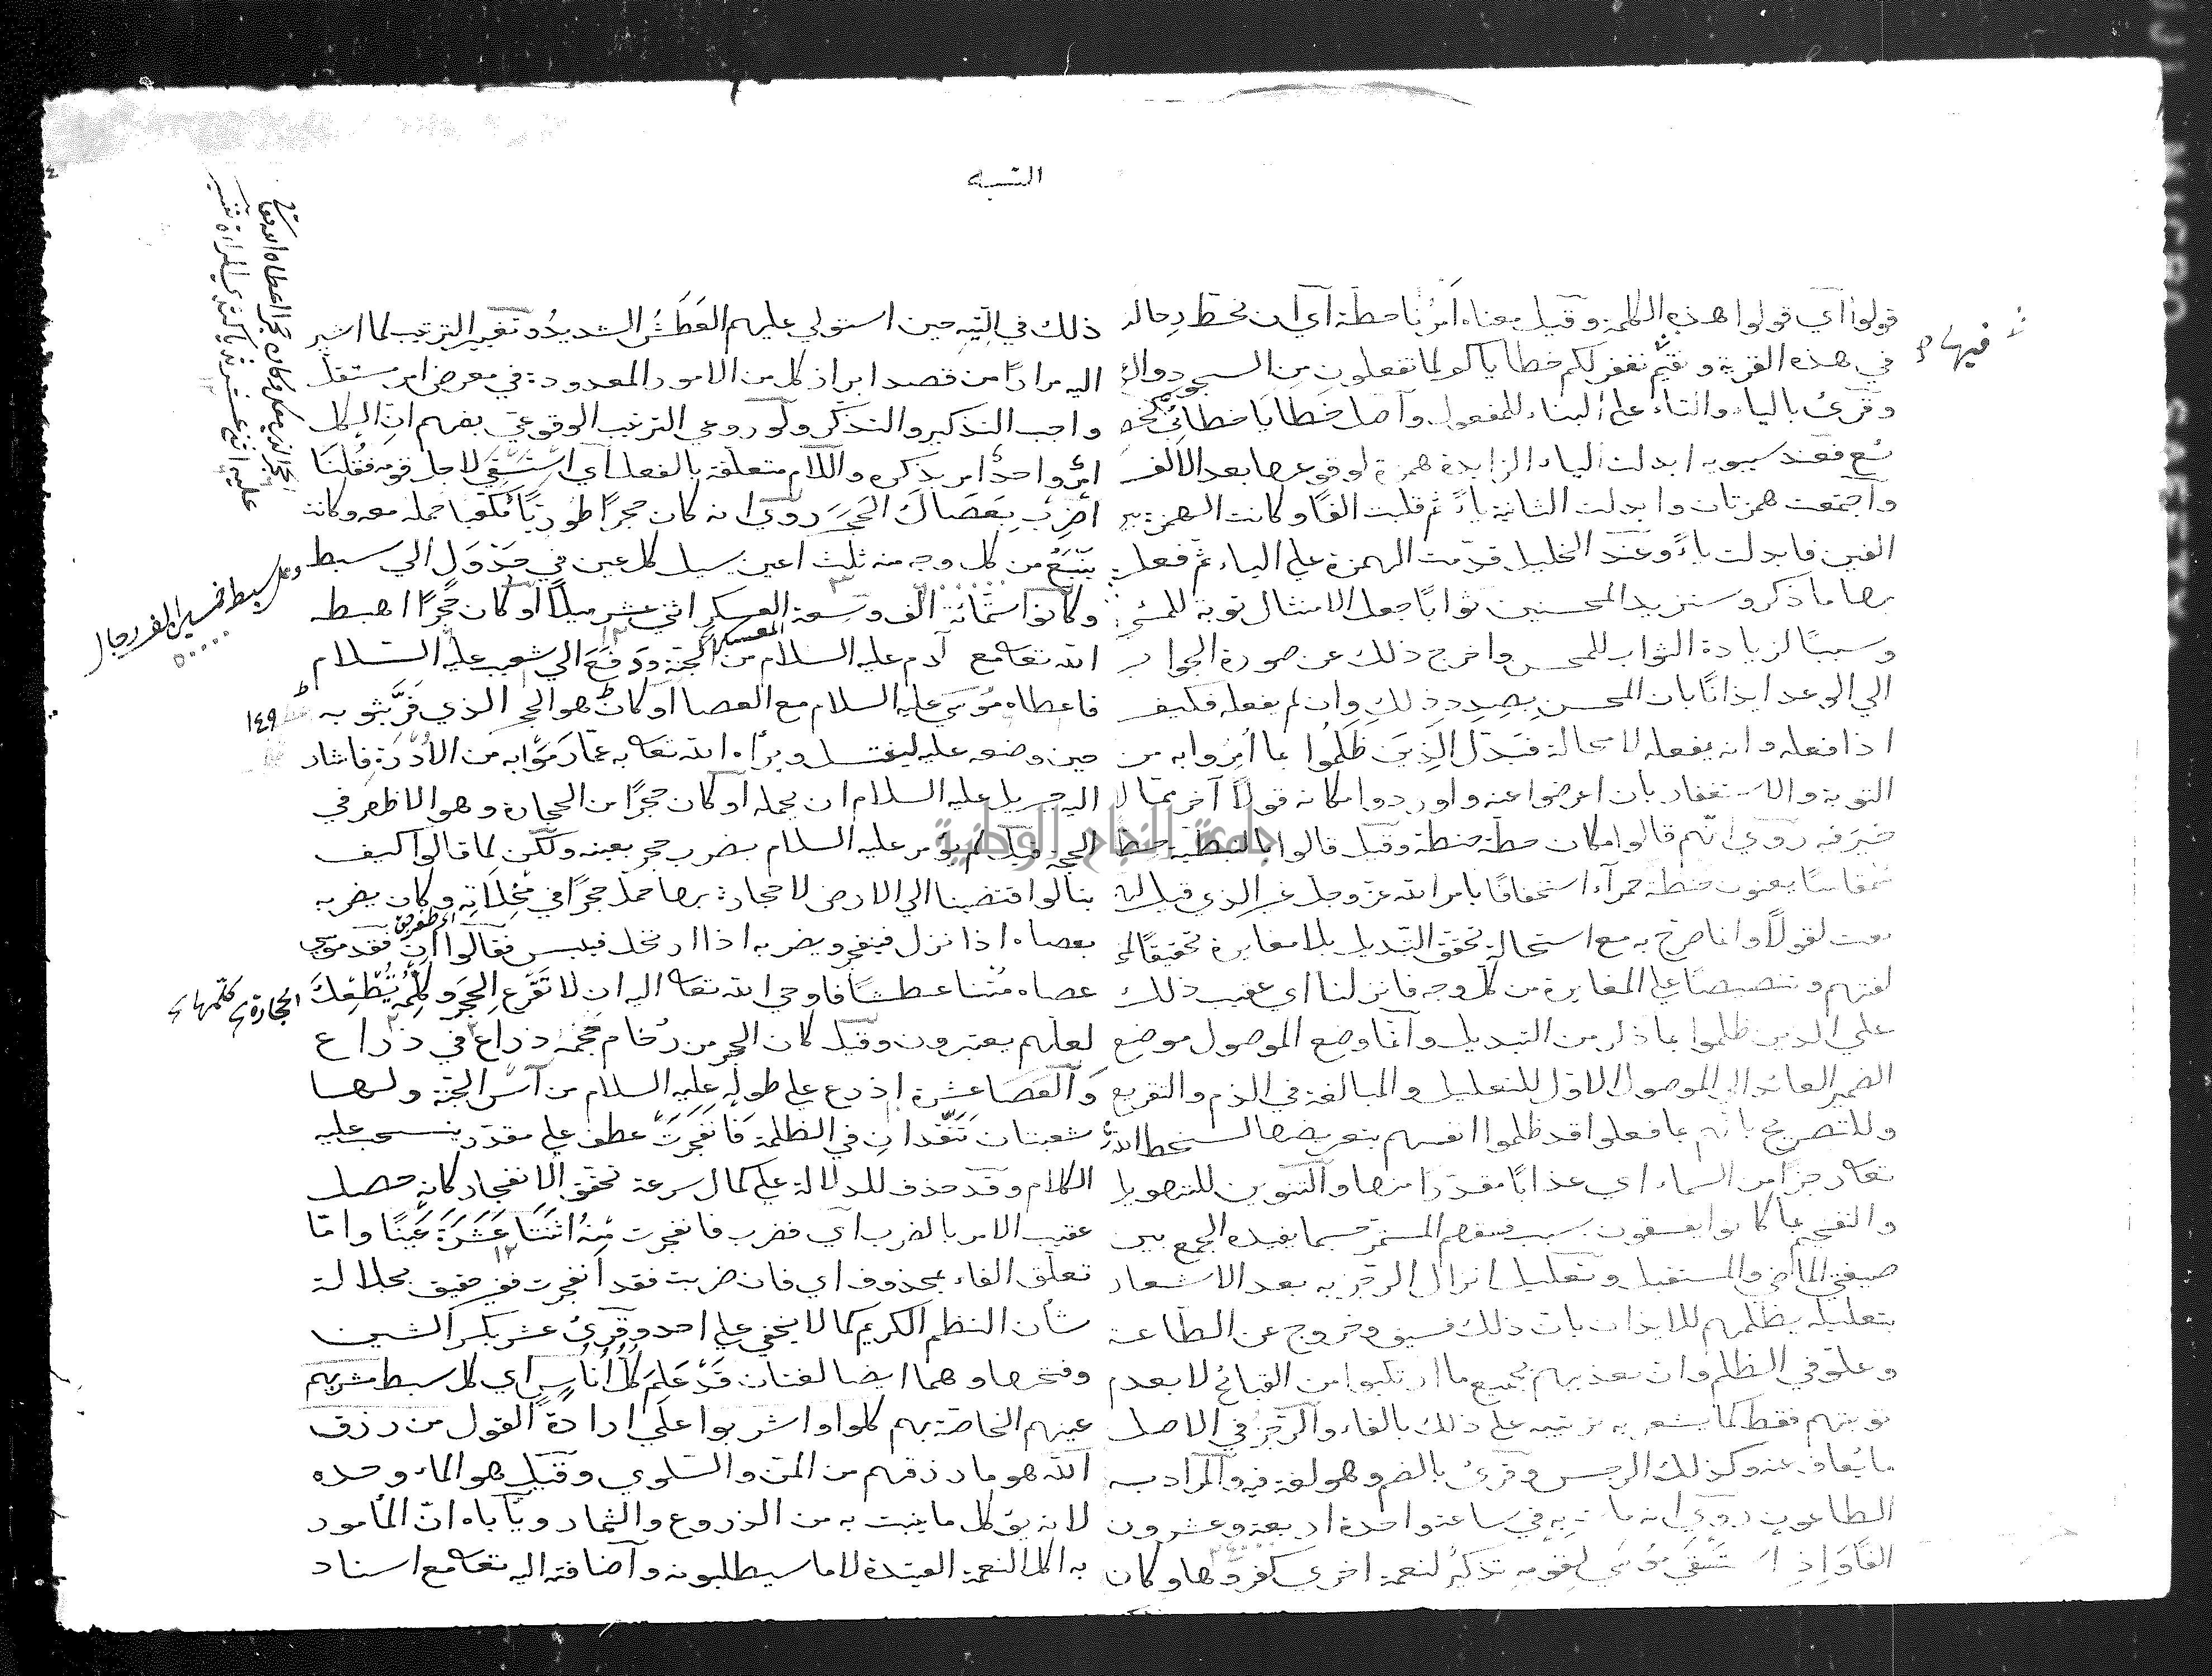 التنبيه
قولوا أي قولوا هذه الكلمة وقيل معناه أمرنا حطة أي ان نحط رحالنا
في هذه القرية ونقيم نغفر لكم خطاياكم لما تفعلون من السجود والدعاء
وقرئ بالياء والتاء على البناء للمفعول وأصل خطايا خطائئ كخضا
ئع فعند سيبويه ابدلت الياء الزايدة همزة لوقوعها بعد الالف
واجتمعت همزتان وابدلت الثانية ياءً ثم قلبت الفًا وكانت الهمزة بين
الفين فابدلت ياءً وعند الخليل قدّمت الهمزة على الياء ثم فعل
بها ما ذكر وسنزيد المحسنين ثوابًا جعل الامتثال توبة للمسئ
وسببًا لزيادة الثواب للمحسن واخرج ذلك عن صورة الجواب
الي الوعد ايذانًا بان المحسن بصدد ذلك وان لم يفعله فكيف
اذا فعله وانه يفعله لا محالة فبدّل الذين ظلموا بما أمروا به من
التوبة والاستغفار بان اعرضوا عنه واوردوا مكانه قولاً آخر مما لا
خير فيه روي انهم قالوا مكان حطة حنطة وقيل قالوا بالنبطية حطا
شمقاسا يعنون حنطة حمرآء استخفافًا بامر الله عز وجل غير الذي قيل لهم
نعت لقولاً وانما صرح به مع استحالة تحقق التبديل بلا مغايرة تحقيقًا لمخا
لفتهم وتنصيصًا على المغايرة من كل وجه فانزلنا اي عقيب ذلك
علي الذين ظلموا بما ذكر من التبديل وانما وضع الموصول موضع
الضمير العائد الى الموصول الاول للتعليل والمبالغة في الذم والتقريع
وللتصريح بانهم بما فعلوا قد ظلموا انفسهم بتعريضها لسخط الله
تعه رجزًا من السماء اي عذابًا مقدرًا منها والتنوين للتهويل
والتفخيم بما كانوا يفسقون بسبب فسقهم المستمر حسبما يفيده الجمع بين
صيغتي الماضي والمستقبل وتعليل انزال الرجز به بعد الاشعار
بتعليله بظلمهم للايذان بان ذلك فسق وخروج عن الطاعة
وغلو في الظلم وان تعذيبهم بجميع ما ارتكبوا من القبائح لا بعدم
توبتهم فقط كما يشعر به ترتيبه على ذلك بالفاء والرجز في الاصل
ما يعاف عنه وكذلك الرجس وقرئ بالضم وهو لغة فيه والمراد به
الطاعون روي انه مات به في ساعة واحدة اربعة وعشرون
الفًا وَاِذِ اسْتَسْقَي مُوسَي لِقَوْمِهِ تذكير لنعمة اخري كفروها وكان
فيها
ذلك في التيه حين استولي عليهم العطش الشديد وتغيير الترتيب لما اشير
اليه مرارًا من قصد ابراز كل من الامور المعدودة في معرض امر مستقل
واجب التذكير والتذكر ولو روعي الترتيب الوقوعي لفهم ان الكل
امر واحد امر بذكره واللام متعلقة بالفعل أي استسقي لاجل قومه فَقُلْنَا
اضْرِبْ بِعَصَاكَ الحَجَرَ روي انه كان حجرًا طوريًّا مكعبا حمله معه وكانت
ينبع من كل وجه منه ثلث اعين يسيل كل عين في جدول الي سبط
وكانوا ستمائة الف وسعة المعسكر اثني عشر ميلاً او كان حجرًا اهبطه
الله تعه مع آدم عليه السلام من الجنة ودفع الي شعيب عليه السلام
فاعطاه موسي عليه السلام مع العصا او كان هو الحجر الذي فرّ بثوبه
حين وضعه عليه ليغتسل وبرّاه الله تعه به عما رموا به من الأدرة فاشار
اليه جبريل عليه السلام ان يحمله او كان حجرًا من الحجارة وهو الاظهر في
الحجة قيل لم يؤمر عليه السلام بضرب حجر بعينه ولكن لما قالوا كيف
بنا لو افضينا الي الارض لا حجارة بها حمل حجرًا في مخلاته وكان يضربه
بعصاه اذا نزل فينفجر ويضربه اذا ارتحل فييبس فقالوا ان فقد موسي
عصاه متنا عطشًا فاوحي الله تعه اليه ان لا تقرع الحجر وكلمه تطعك
لعلهم يعتبرون وقيل كان الحجر من رخام حجمه ذراع في ذراع
والعصا عشرة اذرع على طوله عليه السلام من آس الجنة ولها
شعبتان تتّقدان في الظلمة فَانْفَجَرَتْ عطف على مقدر ينسحب عليه
الكلام وقد حذف للدلالة على كمال سرعة تحقق الانفجار كانه حصل
عقيب الامر بالضرب أي فضرب فانفجرت مِنْهُ اثْنَتَا عَشَرَةَ عَيْنًا وامّا
تعلق الفاء بمحذوف اي فان ضربت فقد انفجرت فغير حقيق بجلالة
شأن النظم الكريم كما لا يخفي على احد وقرئ عشر بكسر الشين
وفتحها وهما ايضا لغتان قَدْ عَلِمَ كُلُّ اُنَاسٍ اي كل سبط مشربهم
عينهم الخاصة بهم كلوا واشربوا علي ارادة القول من رزق
الله هو ما رزقهم من المن والسلوي وقيل هو الماء وحده
لانه يؤكل ما ينبت به من الزروع والثمار ويأباه انّ المأمور
به اكل النعمة العتيدة لا ما سيطلبونه واضافته اليه تعه مع اسناد
وكل سبط خمسين الف رجال
١٤٩
الحجارة
كلمها